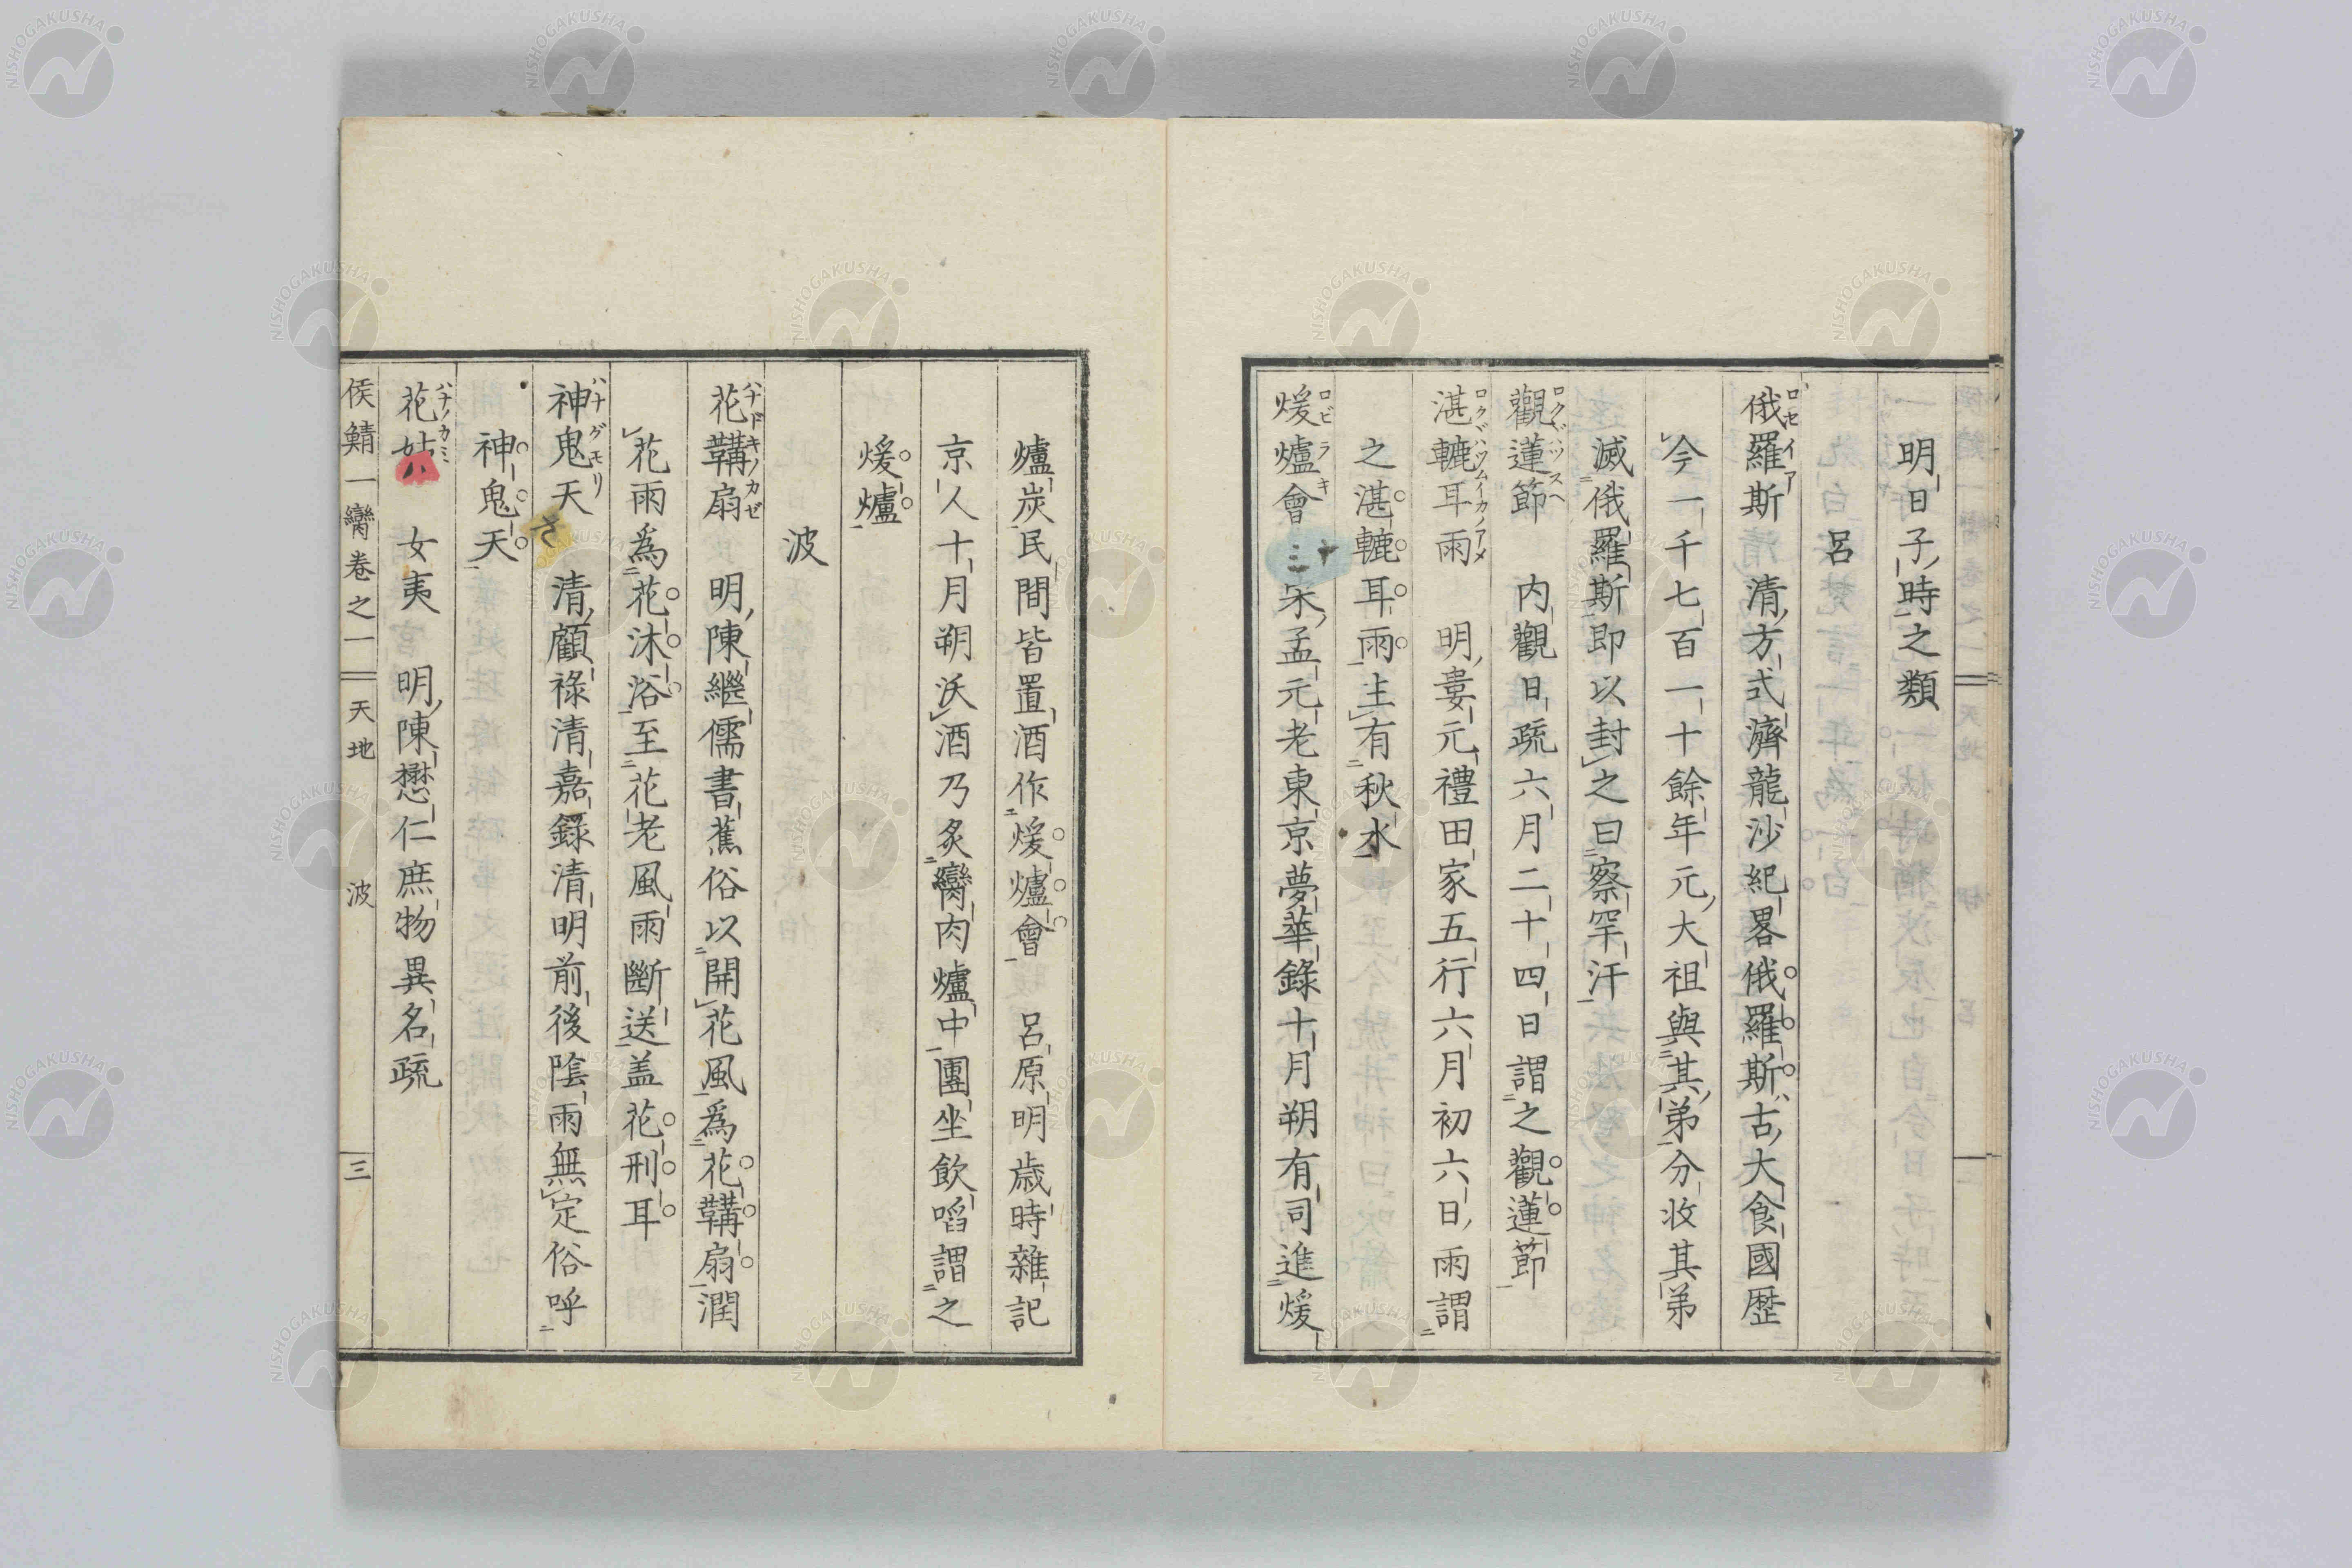 明日子時之類
呂
俄羅斯 清方式濟龍沙紀畧俄羅斯古大食國歴
ロセイア
今一千七百一十餘年元大祖與其弟分收其弟
滅俄羅斯即以封之曰察罕汗
觀蓮節 内觀日疏六月二十四日謂之觀蓮節
湛轆耳雨 明婁元禮田家五行六月初六日雨謂
之湛轆耳雨主有秋水
煖爐會 十三 宋孟元老東京夢華錄十月朔有司進煖
ロビラキ
爐炭民間皆置酒作煖爐會 呂原明歳時雜記
京人十月朔沃酒乃炙臠肉爐中團坐飲啗謂之
煖爐
波
花鞲扇 明陳繼儒書蕉俗以開花風爲花鞲扇潤
ハナドキノカゼ
花雨爲花沐浴至花老風雨斷送盖花刑耳
神鬼天 清顧祿清嘉錄清明前後陰雨無定俗呼
ハナグモリ
神鬼天
花姑 女夷 明陳懋仁庶物異名疏
ハナノカミ
侯鯖一臠卷之一 天地 波 三
NISHOGAKUSHA